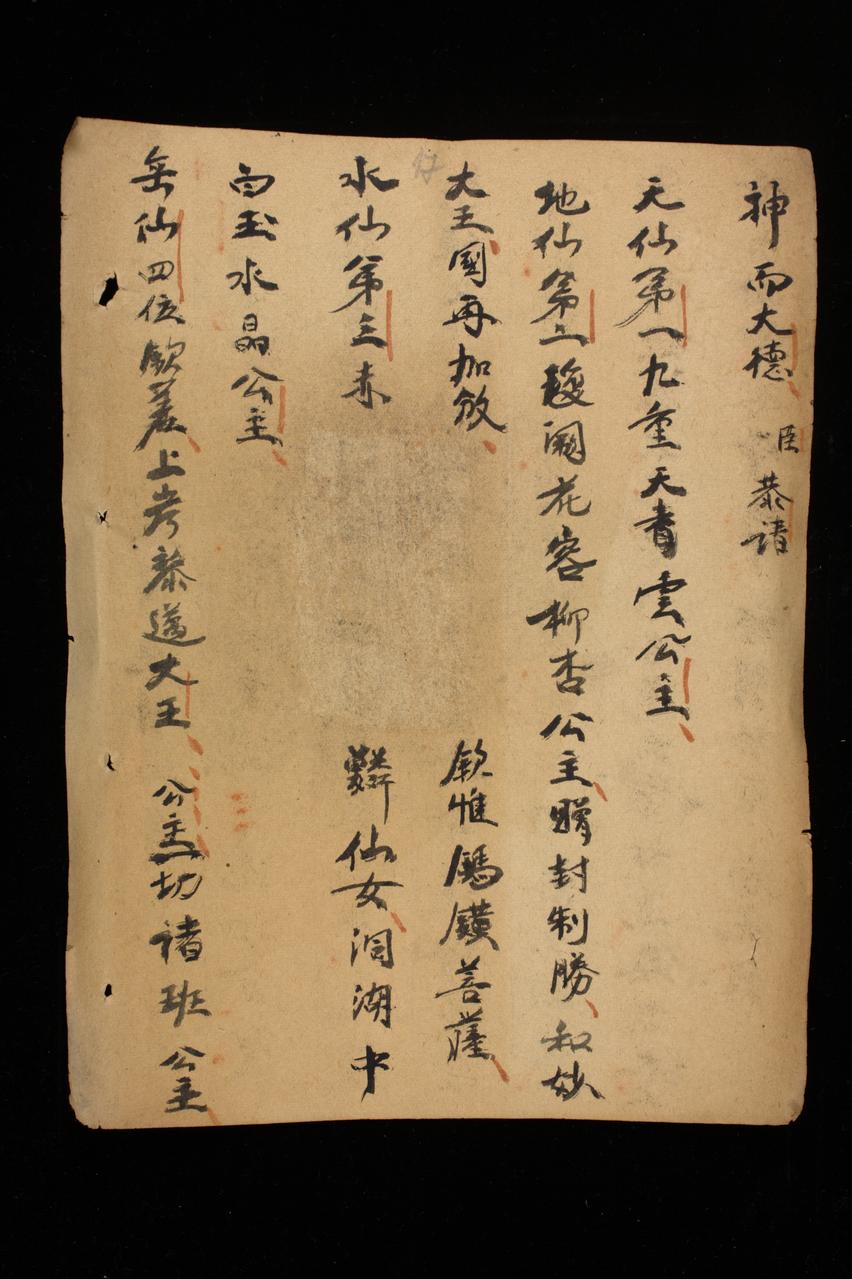 神而大德 臣 恭請
天仙第一九重天青雲公主
地仙第二瓊闕花容柳杏公主贈封制勝和妙
大王國再加敕 欽惟傌鐄菩薩
水仙第三赤 仙女洞湖中
白玉水晶公主
岳仙四位欽差上考泰道大王 公主一切諸班公主